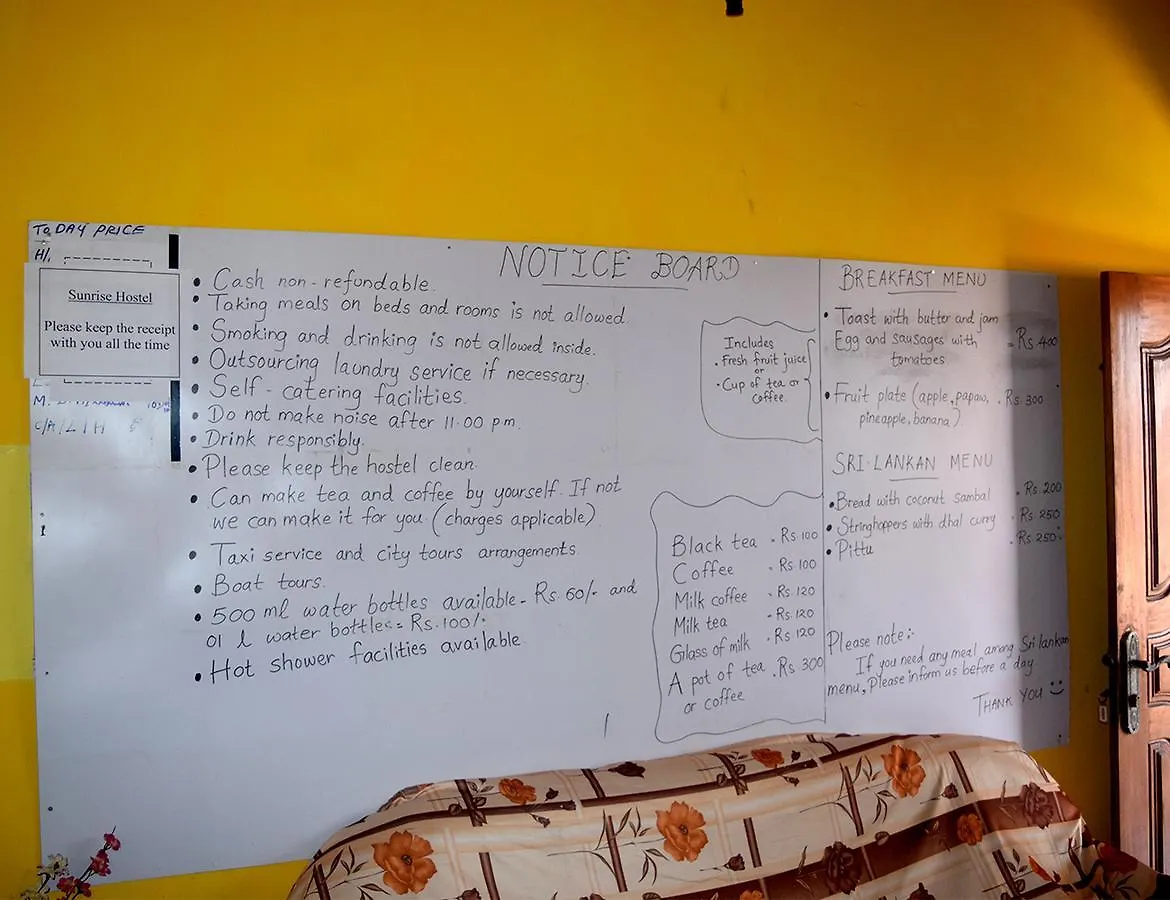 TODAY PRICE
H/.
Sunrise Hostel
Please keep the receipt
with you all the time
M.
NOTICE BOARD
• Cash non-refundable.
• Taking meals on beds and rooms is not allowed.
• Smoking and drinking is not allowed inside.
• Outsourcing laundry service if necessary.
• Self-catering facilities.
• Do not make noise after 11.00 pm.
• Drink responsibly.
• Please keep the hostel clean.
• Can make tea and coffee by yourself. If not
we can make it for you. (charges applicable)
• Taxi service and city tours arrangements.
• Boat tours.
• 500 ml water bottles available - Rs. 60/- and
01 l water bottles = Rs. 100/-
• Hot shower facilities available.
Includes
• Fresh fruit juice
or
• Cup of tea or
coffee.
Black tea - Rs 100
Coffee - Rs 100
Milk coffee - Rs 120
Milk tea - Rs. 120
Glass of milk - Rs 120
A pot of tea - Rs 300
or coffee
BREAKFAST MENU
• Toast with butter and jam
Egg and sausages with - Rs 400
tomatoes
• Fruit plate (apple, papaw, - Rs 300
pineapple, banana)
SRI-LANKAN MENU
• Bread with coconut sambal - Rs. 200
• Stringhoppers with dhal curry - Rs 250
• Pittu - Rs 250
Please note:-
If you need any meal among Sri lankan
menu, Please inform us before a day
THANK YOU